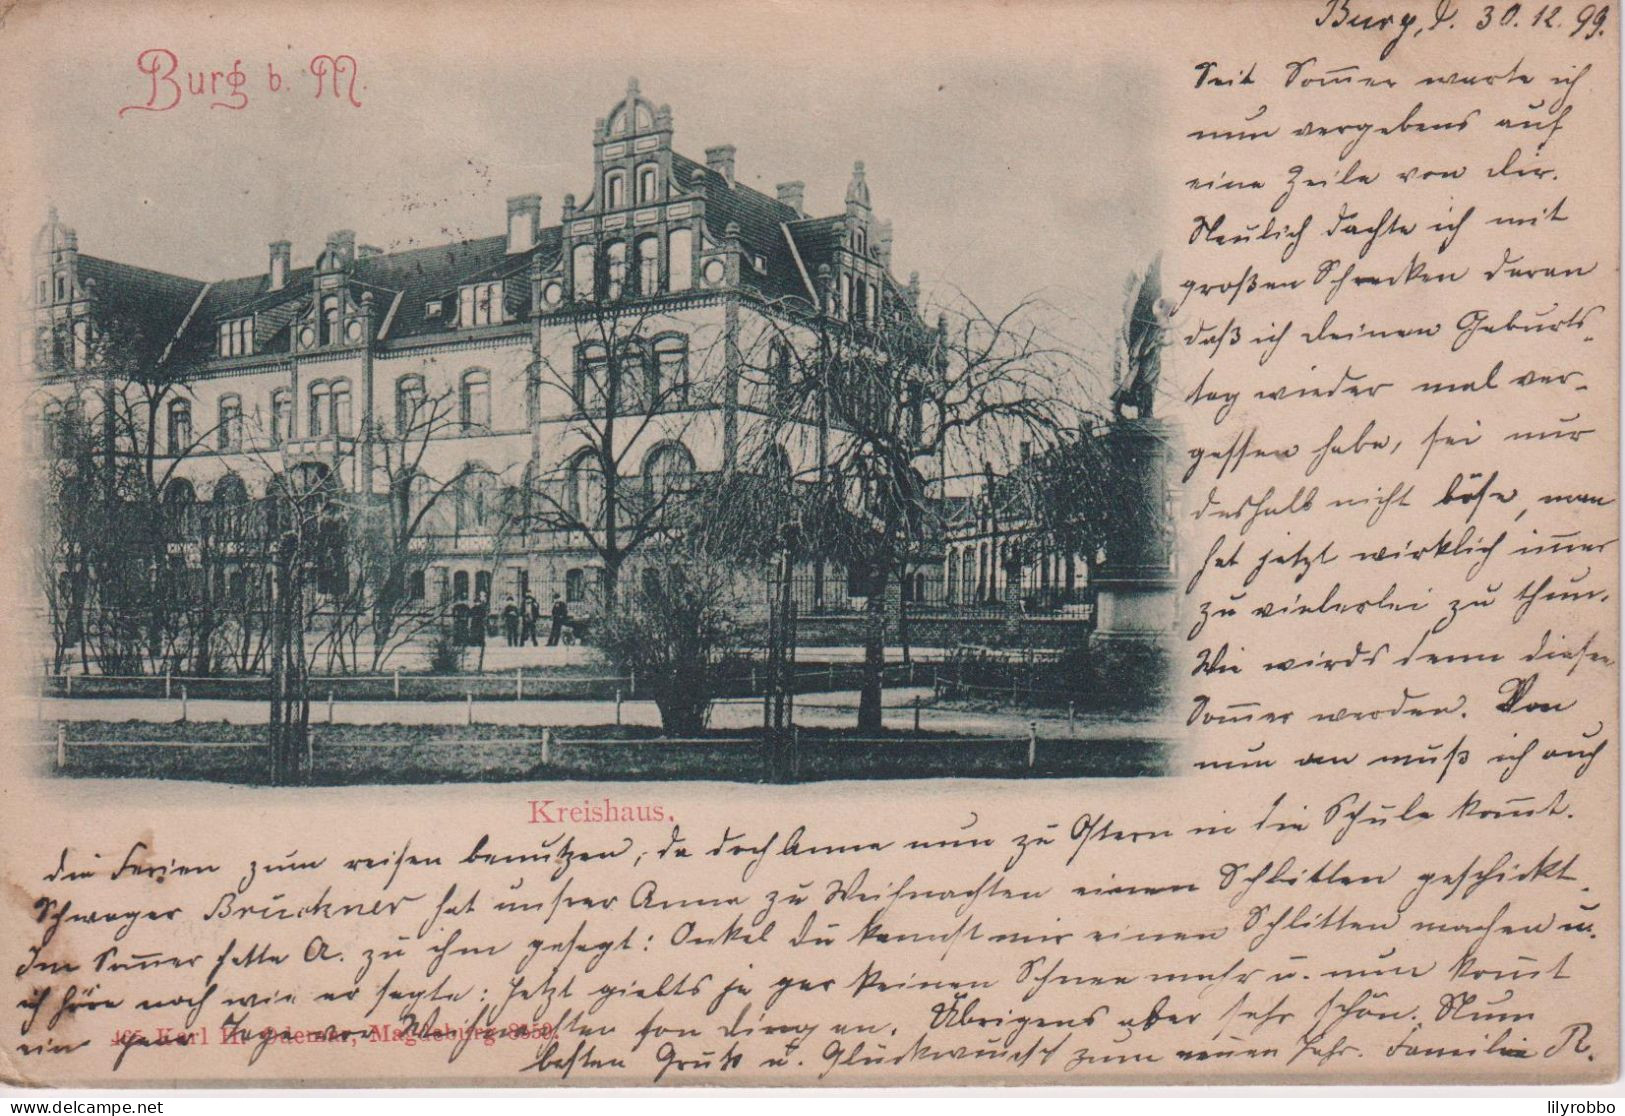 Burg, d. 30.12.99.
Burg b. M.
Seit Sommer warte ich
nun vergebens auf
eine Zeile von Dir.
Neulich dachte ich mit
großen Schrecken daran
daß ich Deinen Geburts-
tag wieder mal ver-
gessen habe, sei nur
deshalb nicht böse, man
hat jetzt wirklich immer
zu vielerlei zu thun.
Wie wirds denn diesen
Sommer werden. Von
nun an muß ich auch
Kreishaus.
die Ferien zum reisen benutzen, da doch Anna nun zu Ostern in die Schule kommt.
Schwager Brückner hat unsrer Anna zu Weihnachten einen Schlitten geschickt.
Im Sommer hatte A. zu ihm gesagt: Onkel Du kannst mir einen Schlitten machen u.
ich höre noch wie er sagte: Jetzt giebts ja gar keinen Schnee mehr u. nun kommt
ein paar Tage vor Weihnachten son Ding an. Übrigens aber sehr schön. Nun
465 Karl H. Odemar, Magdeburg
besten Gruß u. Glückwunsch zum neuen Jahr. Familie R.
lilyrobbo